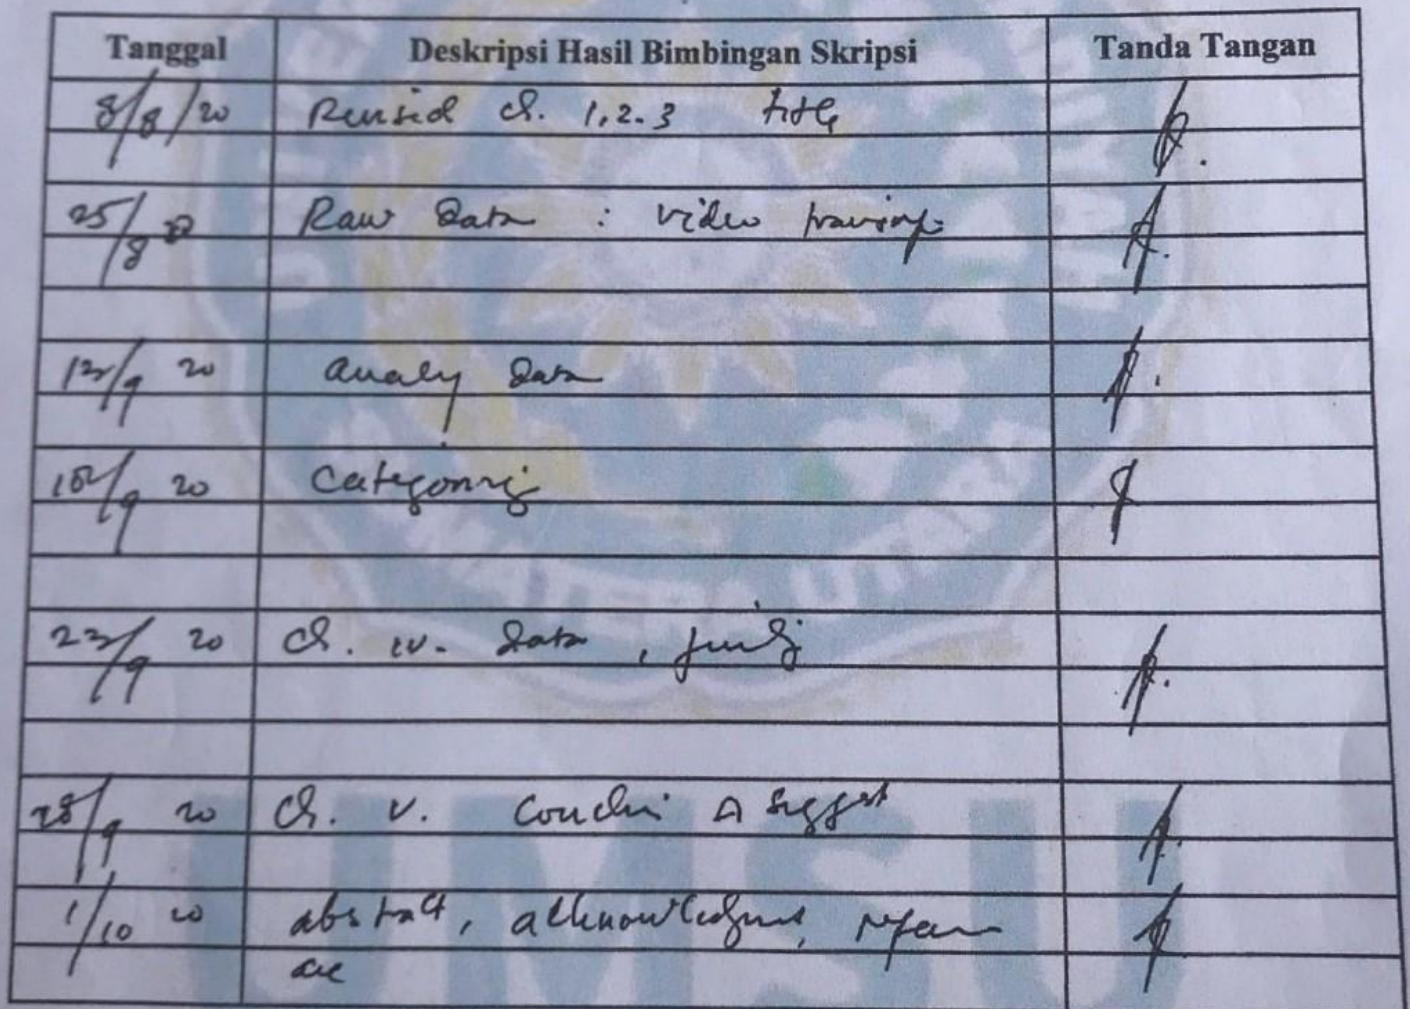 Tanggal Deskripsi Hasil Bimbingan Skripsi Tanda Tangan
8/8/20 Revised Ch. 1,2.3 title
25/8 20 Raw Data : video
12/9 20 analy Data
16/9 20 Categorizing
23/9 20 Ch. IV. Data ,
28/9 20 Ch. V. Conclu & Suggest
1/10 20 abstract, acknowledgment, referen
ce
UMSU